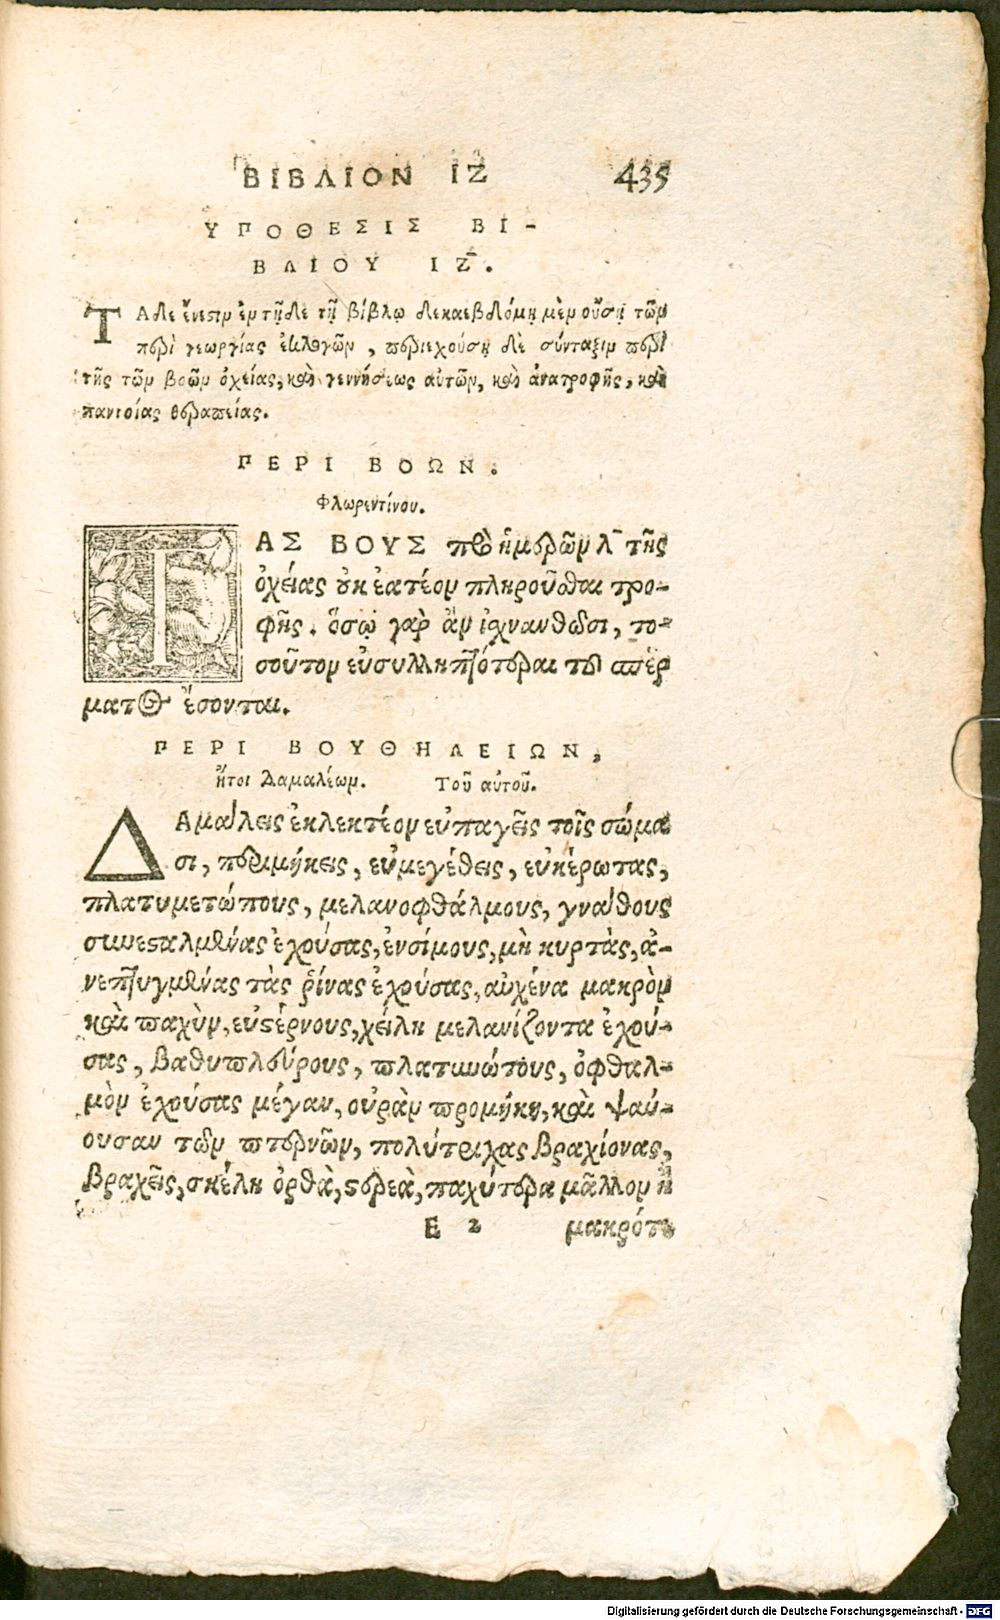 ΒΙΒΛΙΟΝ ΙΖ 435
ΥΠΟΘΕΣΙΣ ΒΙ-
ΒΛΙΟΥ ΙΖ.
ΤΑδε ἔνεστιν ἐν τῇδε τῇ βίβλῳ δεκαεβδόμῃ μὲν οὔσῃ τῶν
περὶ γεωργίας ἐκλογῶν, περιεχούσῃ δὲ σύνταξιν περὶ
τῆς τῶν βοῶν ὀχείας, καὶ γεννήσεως αὐτῶν, καὶ ἀνατροφῆς, καὶ
παντοίας θεραπείας.
ΠΕΡΙ ΒΟΩΝ.
Φλωρεντίνου.
ΤΑΣ ΒΟΥΣ πρὸ ἡμερῶν λ τῆς
ὀχείας οὐκ ἐατέον πληροῦσθαι τρο-
φῆς. ὅσῳ γὰρ ἂν ἰσχνανθῶσι, το-
σοῦτον εὐσυλληπτότεραι τοῦ σπέρ
ματος ἔσονται.
ΠΕΡΙ ΒΟΥΘΗΛΕΙΩΝ,
ἤτοι Δαμαλέων. Τοῦ αὐτοῦ.
ΔΑμάλεις ἐκλεκτέον εὐπαγεῖς τοῖς σώμα
σι, περιμήκεις, εὐμεγέθεις, εὐκέρωτας,
πλατυμετώπους, μελανοφθάλμους, γνάθους
συνεσταλμένας ἐχούσας, ἐνσίμους, μὴ κυρτὰς, ἀ-
νεπτυγμένας τὰς ῥίνας ἐχούσας, αὐχένα μακρὸν
καὶ παχὺν, εὐστέρνους, χείλη μελανίζοντα ἐχού-
σας, βαθυπλεύρους, πλατυνώτους, ὀφθαλ-
μὸν ἐχούσας μέγαν, οὐρὰν προμήκη, καὶ ψαύ-
ουσαν τῶν πτερνῶν, πολύτριχας βραχίονας,
βραχεῖς, σκέλη ὀρθὰ, στερεὰ, παχύτερα μᾶλλον ἢ
Ε 2 μακρότε
Digitalisierung gefördert durch die Deutsche Forschungsgemeinschaft - DFG